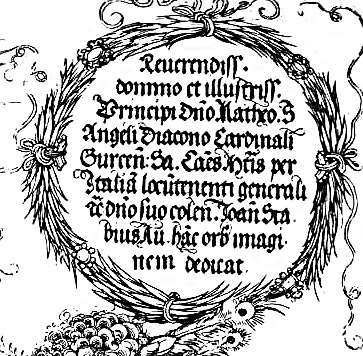 Reuerendiss.
domino et illustriss.
Principi dño. Matheo. S
Angeli Diacono Cardinali
Gurceñ: Sa. Caēs. Mtis per
Italiā locūtenenti generali
tc̄ dño suo coleñ. Joañ Sta
bius Au. hāc orb' imagi
nem dedicat.